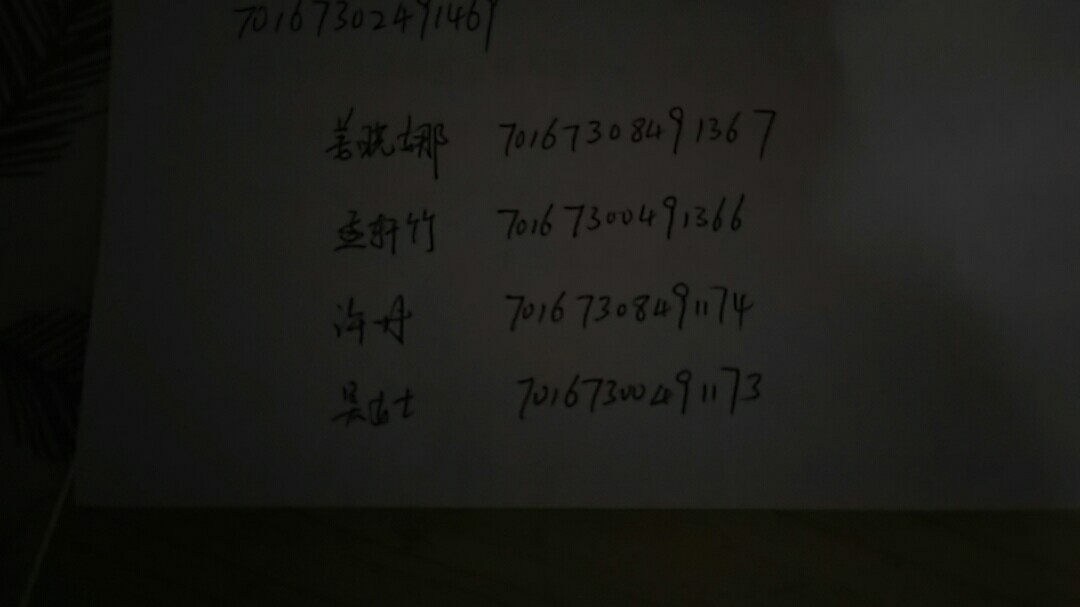 70167302491469
姜晓娜 70167308491367
孟轩竹 70167300491366
许丹 70167308491174
吴 70167300491173